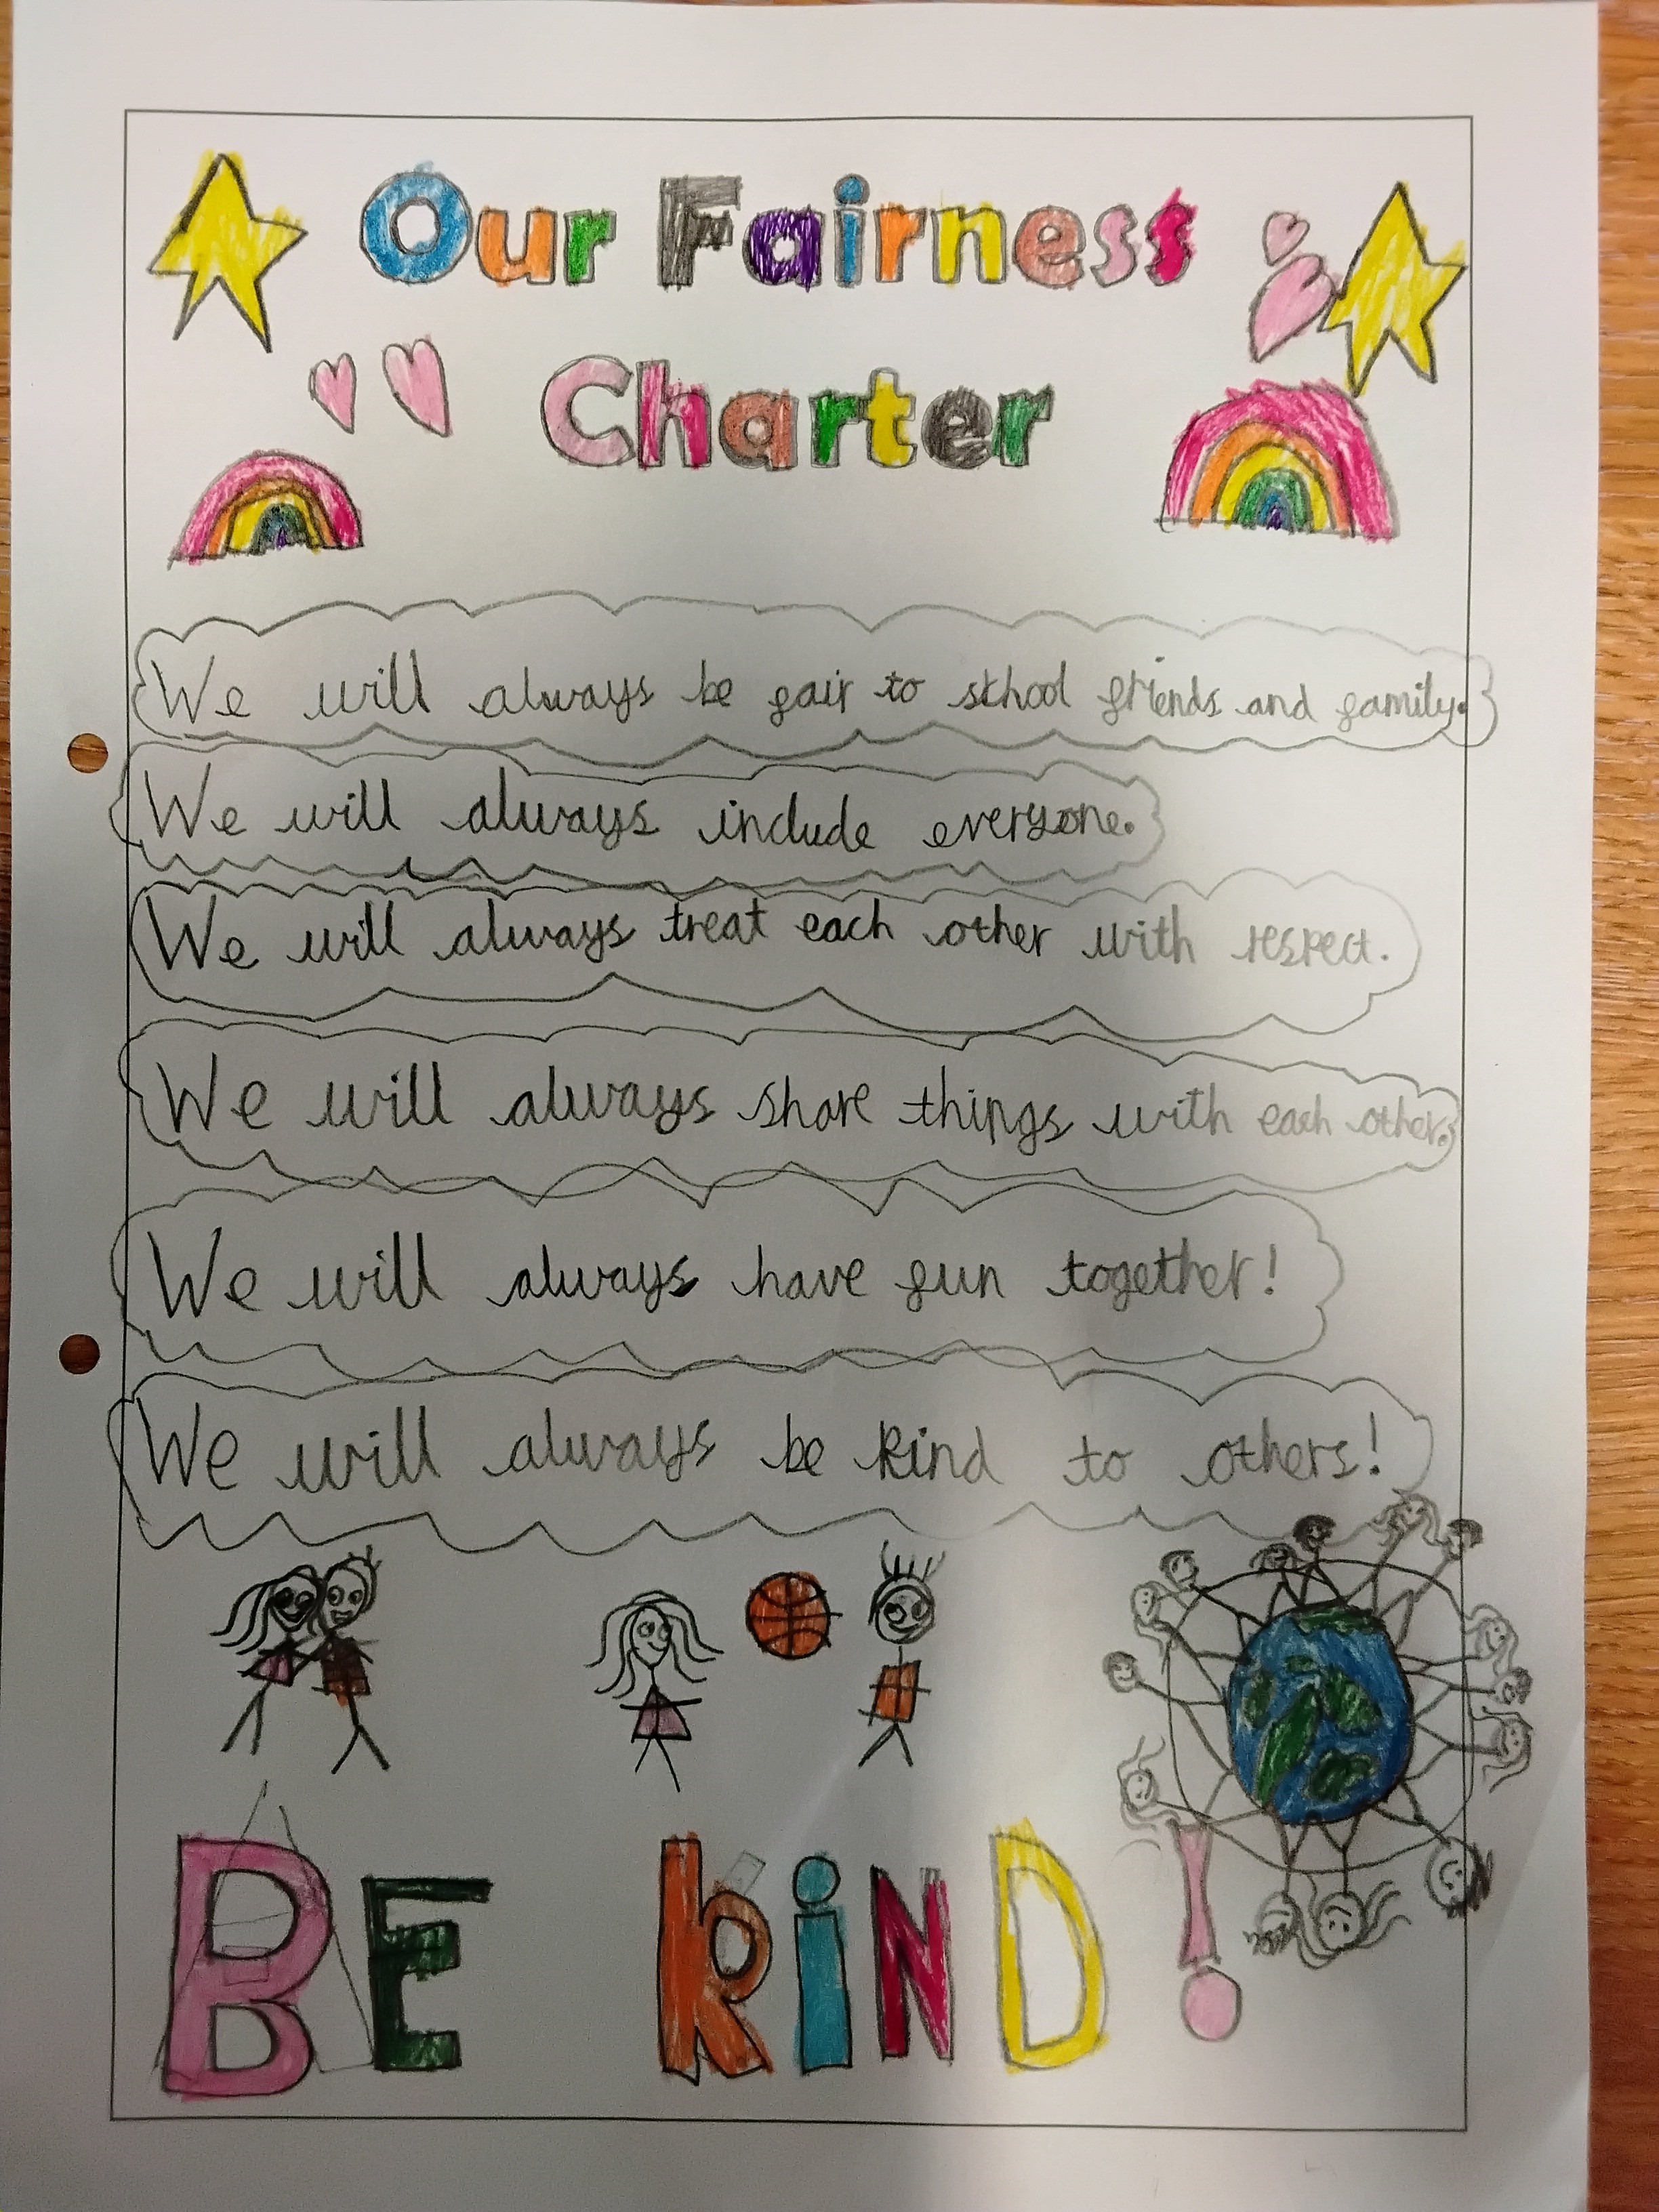 Our Fairness
Charter
We will always be fair to school friends and family.
We will always include everyone.
We will always treat each other with respect.
We will always share things with each other.
We will always have fun together!
We will always be kind to others!
BE KiND!